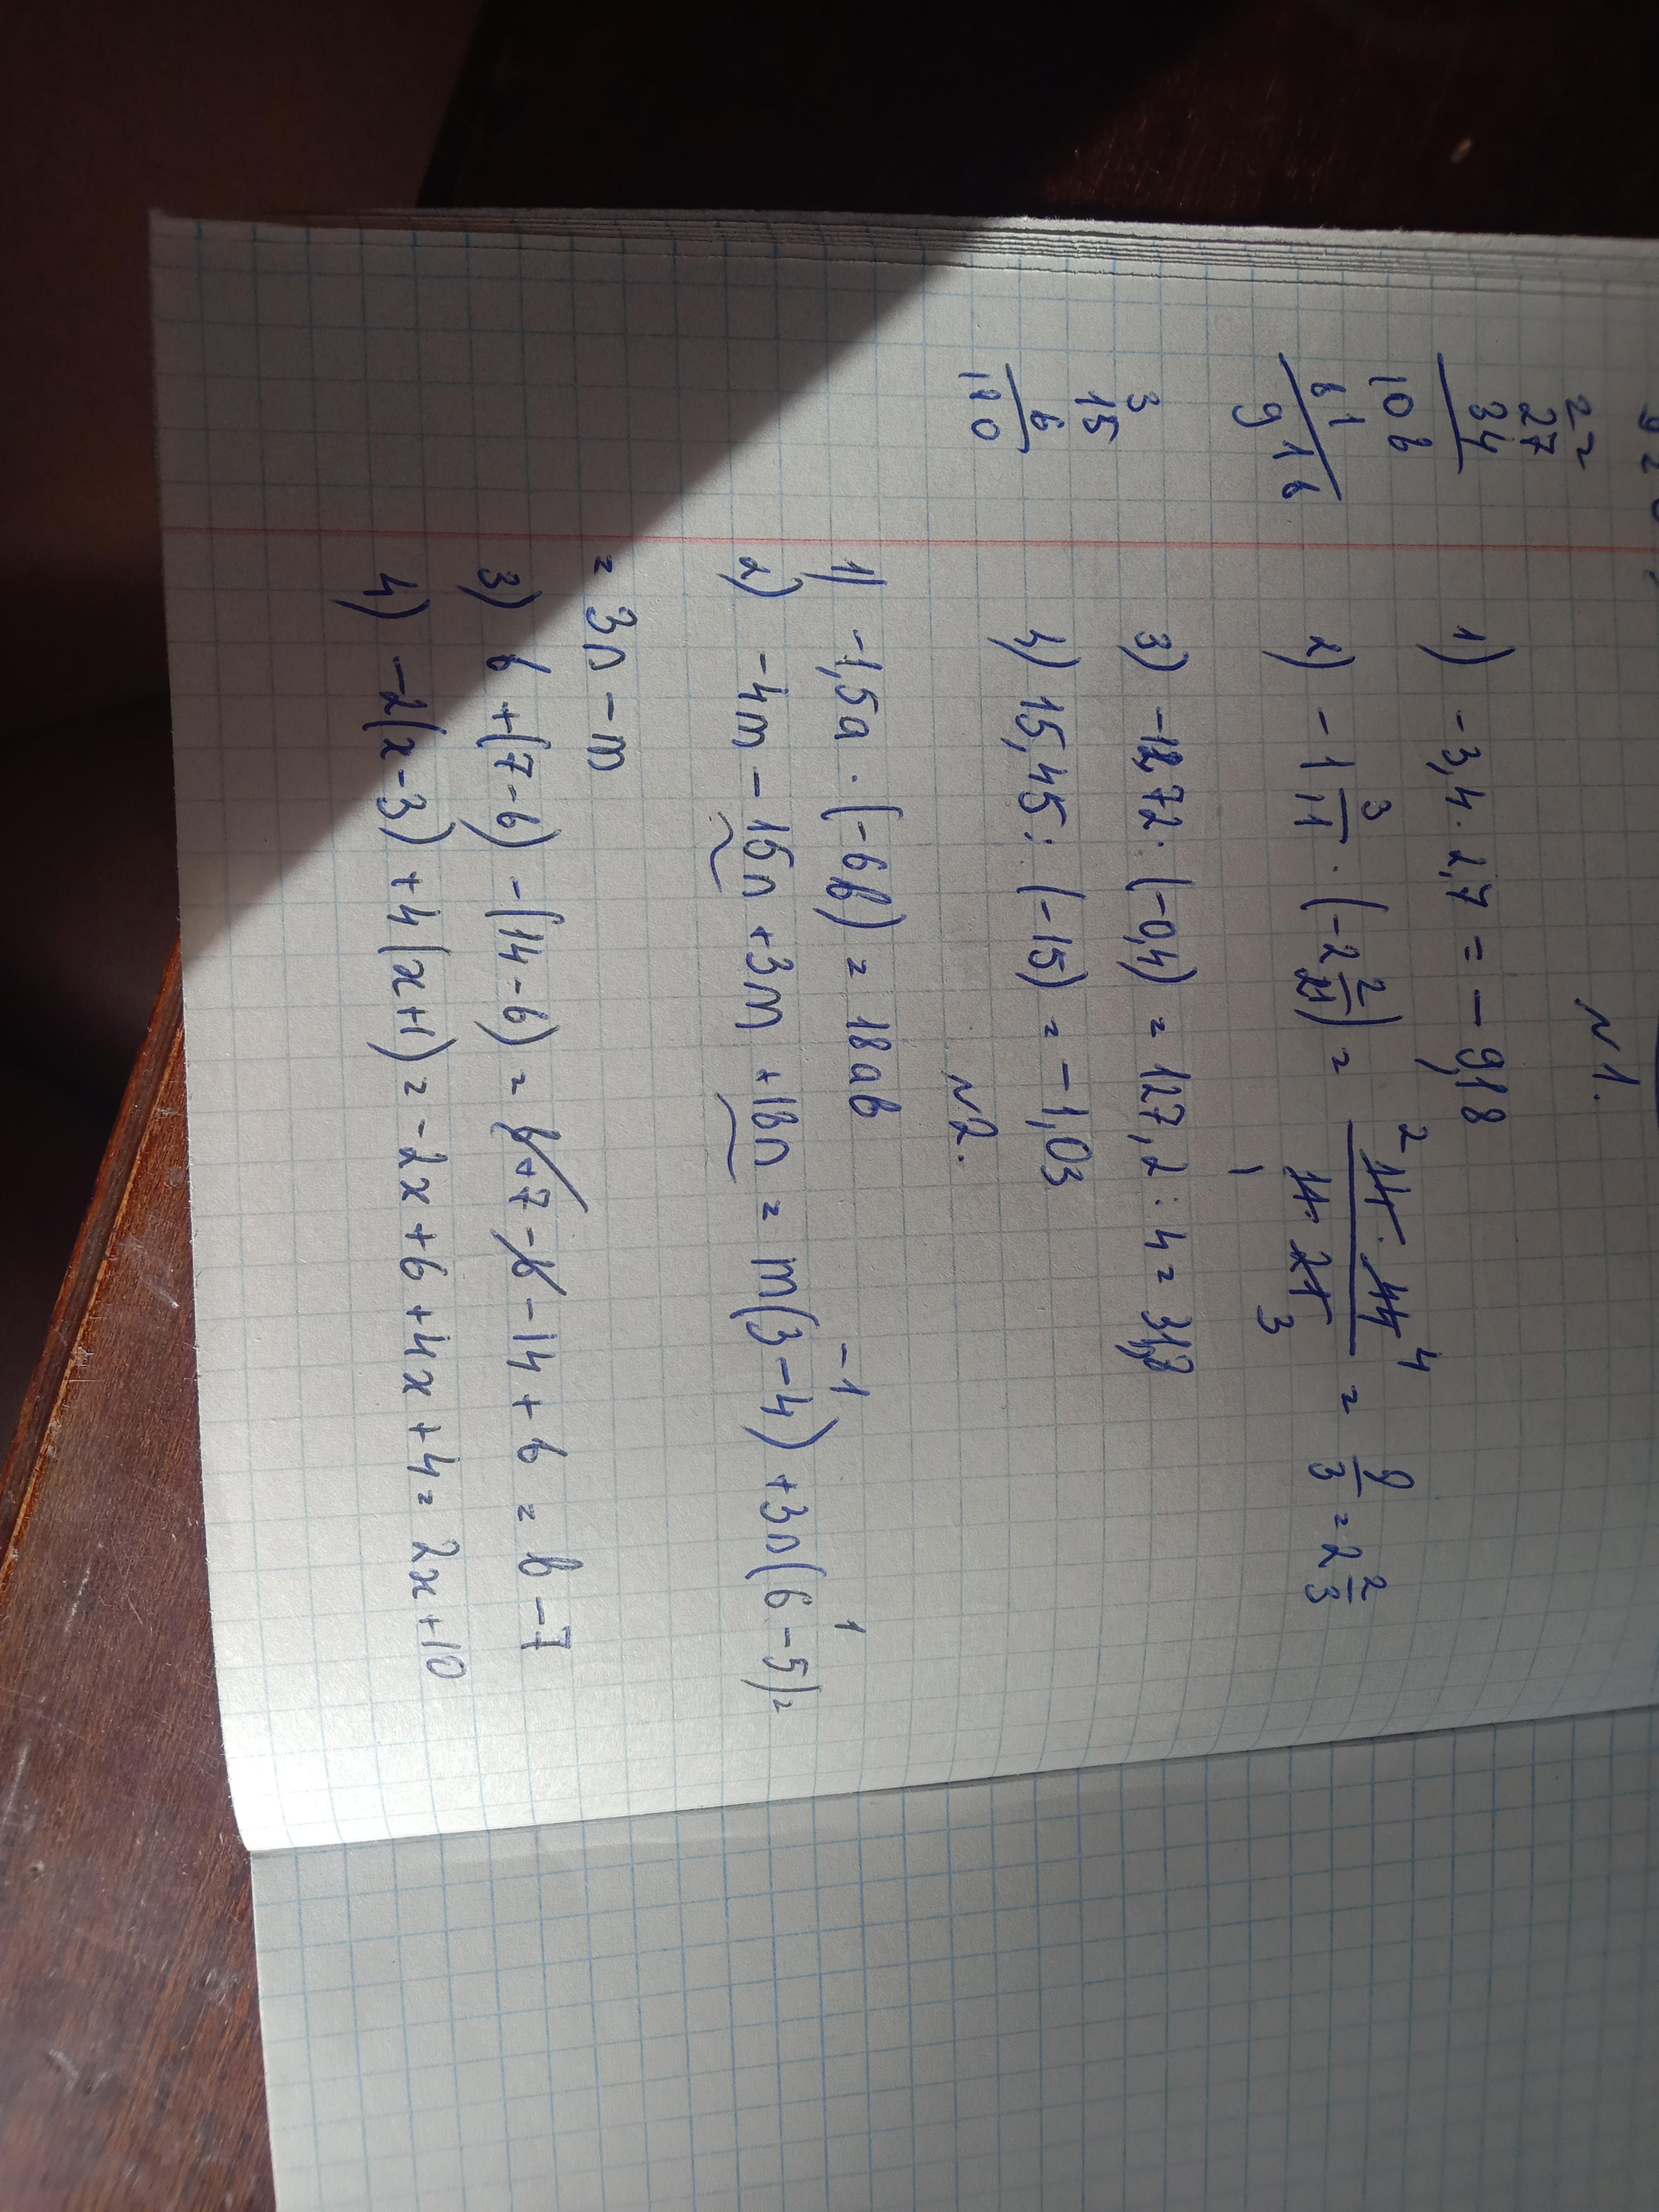 N 1.
1) -3,4 · 2,7 = - 9,18
2) -1 3/11 · (-2 2/21) = 14 · 44 / 11 · 21 = 8/3 = 2 2/3
3) -12,72 : (-0,4) = 127,2 : 4 = 31,8
4) 15,45 : (-15) = -1,03
N 2.
1) -1,5a · (-6b) = 18ab
2) -4m - 15n + 3m + 18n = m(3-4) + 3n(6-5) =
= 3n - m
3) b + (7-b) - (14-b) = b + 7 - b - 14 + b = b - 7
4) -2(x-3) + 4(x+1) = -2x + 6 + 4x + 4 = 2x + 10
2 2
27
34
108
81
9 1 8
3
15
6
180